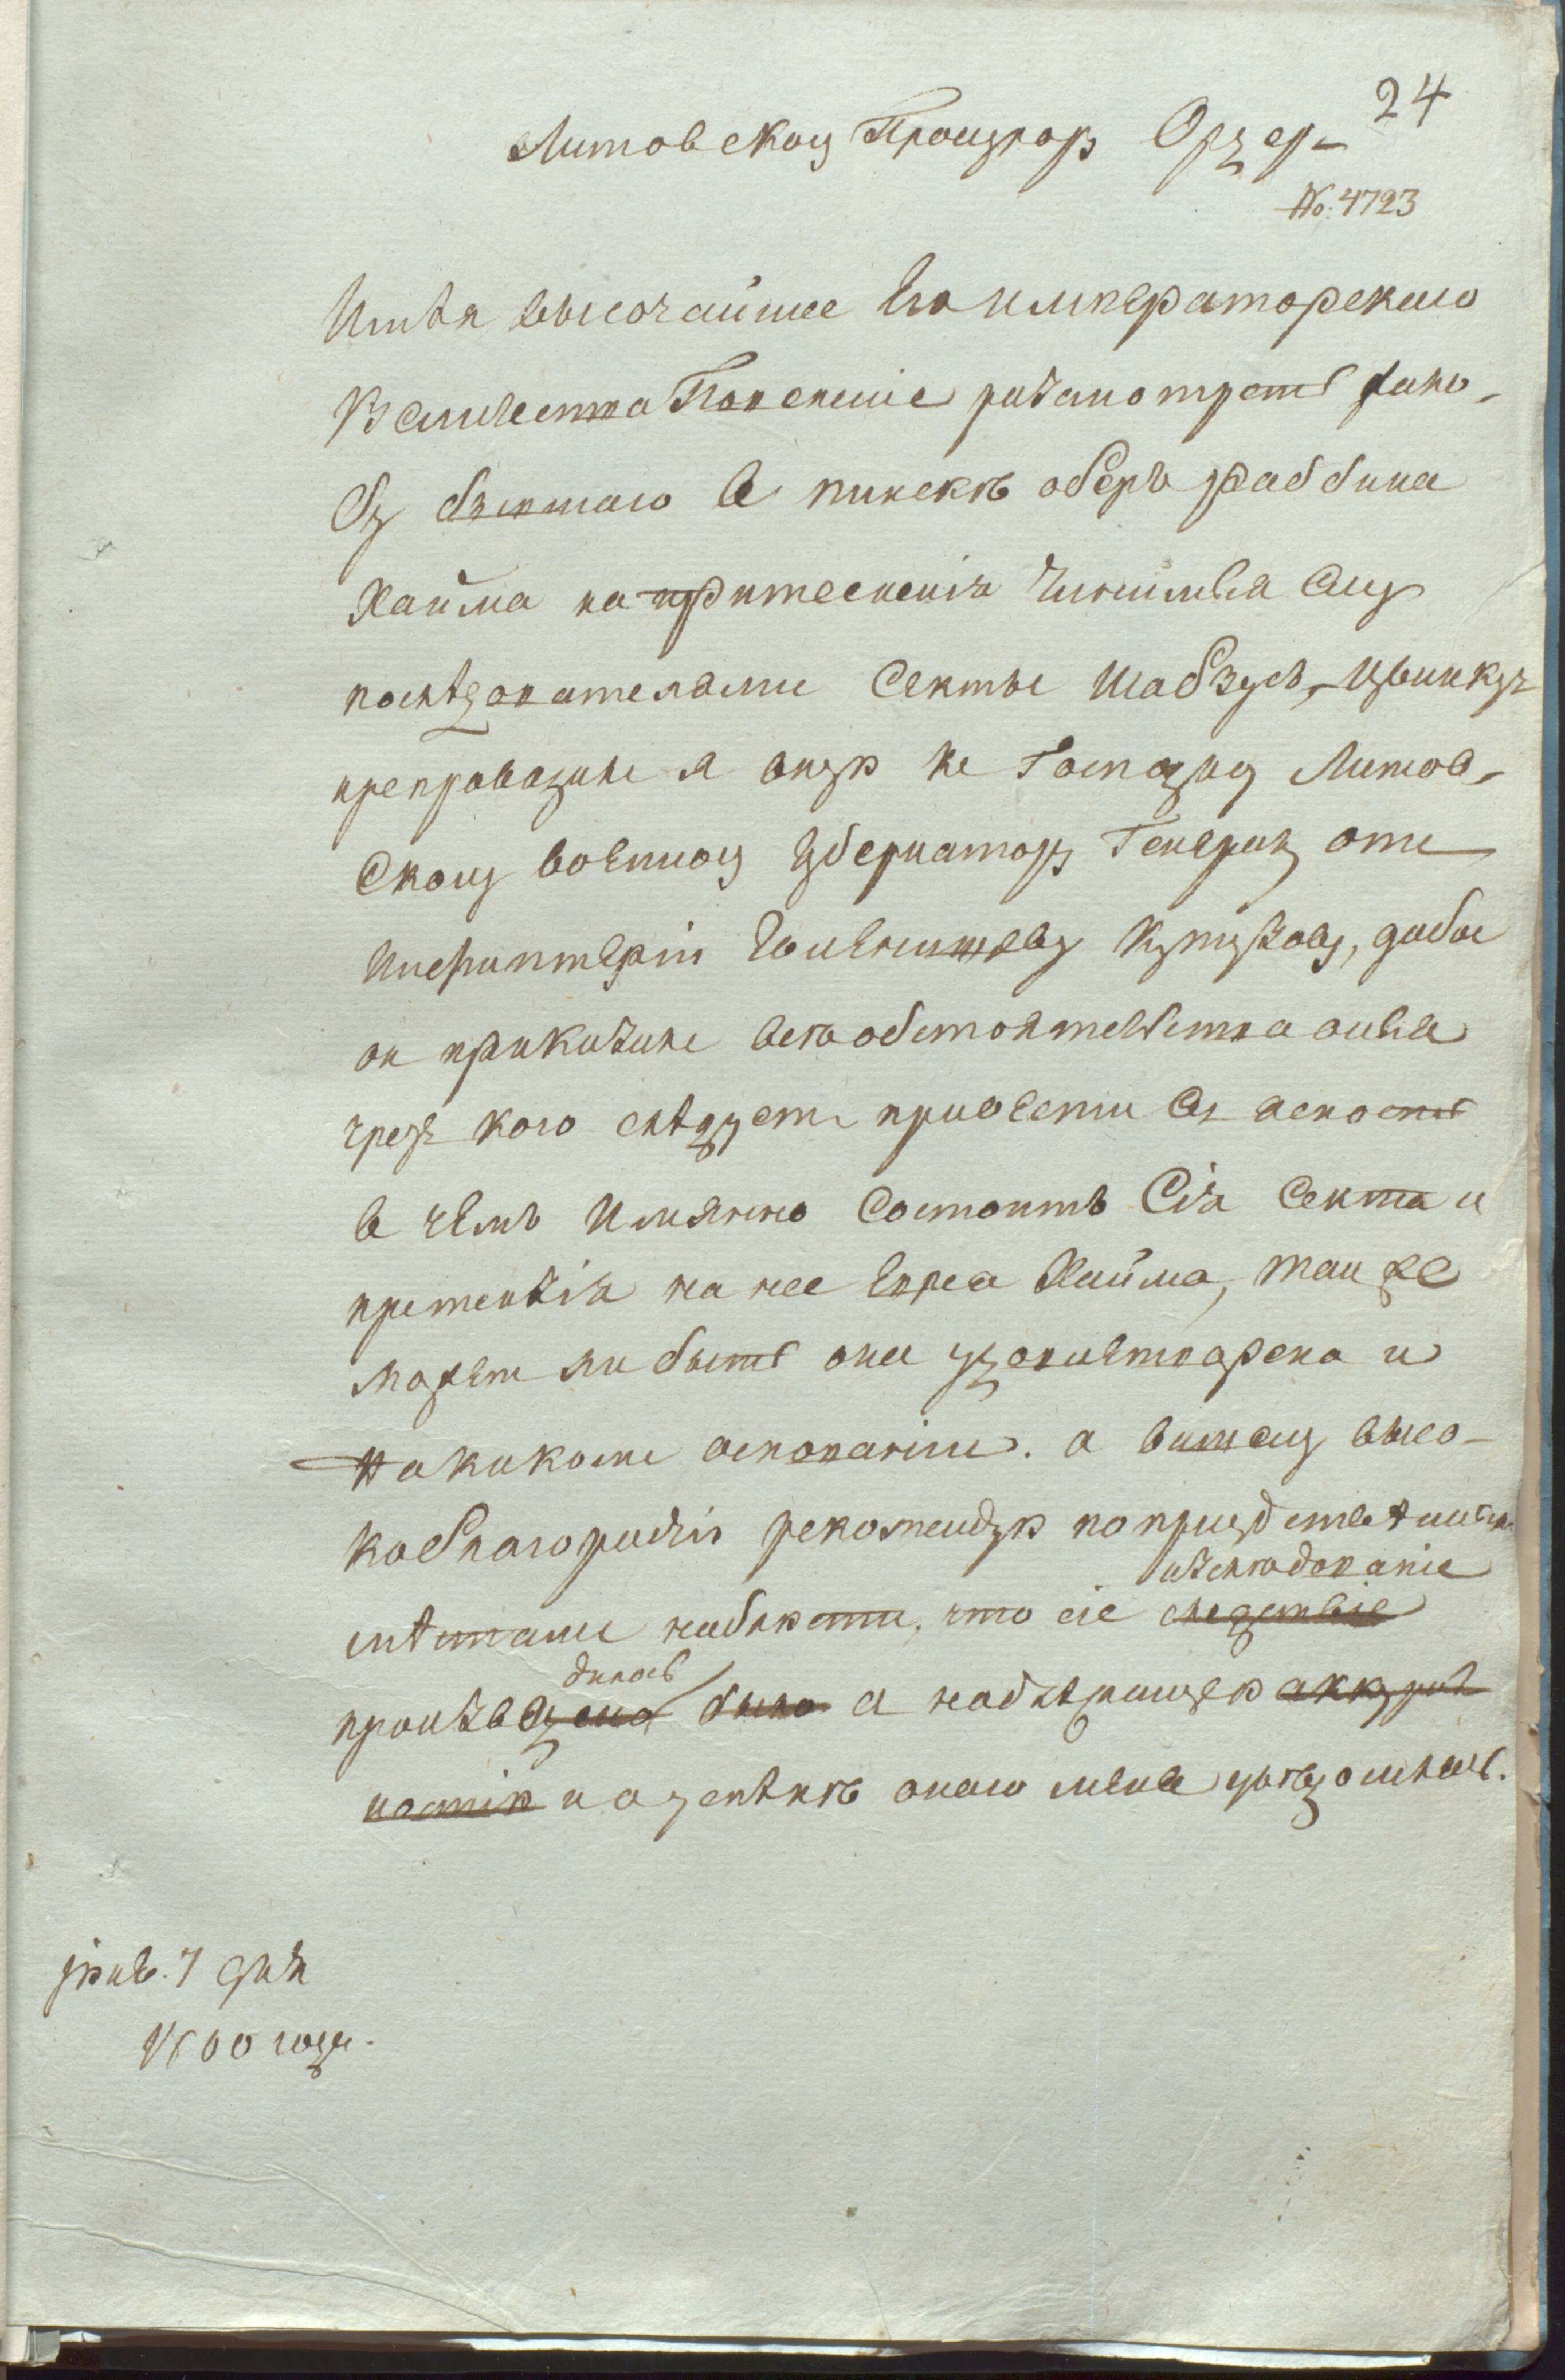 24
Литовскому Прокурору Ордер
№: 4723
Имѣя высочайшее Его императорскаго
Величества Повеленіе разсмотреть жало-
бу бывшаго в пинскѣ оберъ раббина
Хайма на притесненія чинимыя ему
последователями секты Шабзусъ-Цвинкуз
препроводилъ я оную к Господину Литов-
скому военному губернатору Генералу от
Инфантеріи Голенищеву Кутузову, дабы
он приказалъ всѣ обстоятельства оныя
чрез кого слѣдует привести в ясность
в чемъ имянно состоитъ Сія секта и
претензія на нее Еврея Хайма, так же
может ли быть она удовлетворена и
на каком основаніи. а вашему высо-
коблагородію рекомендую по присудственным
мѣстам наблюсти, что сіе следствіе изследованіе
произведено было дилось с надлежащею аккурат
ностію и о успѣхѣ онаго меня увѣдомлять.
генв. 7 дня
1800 года.